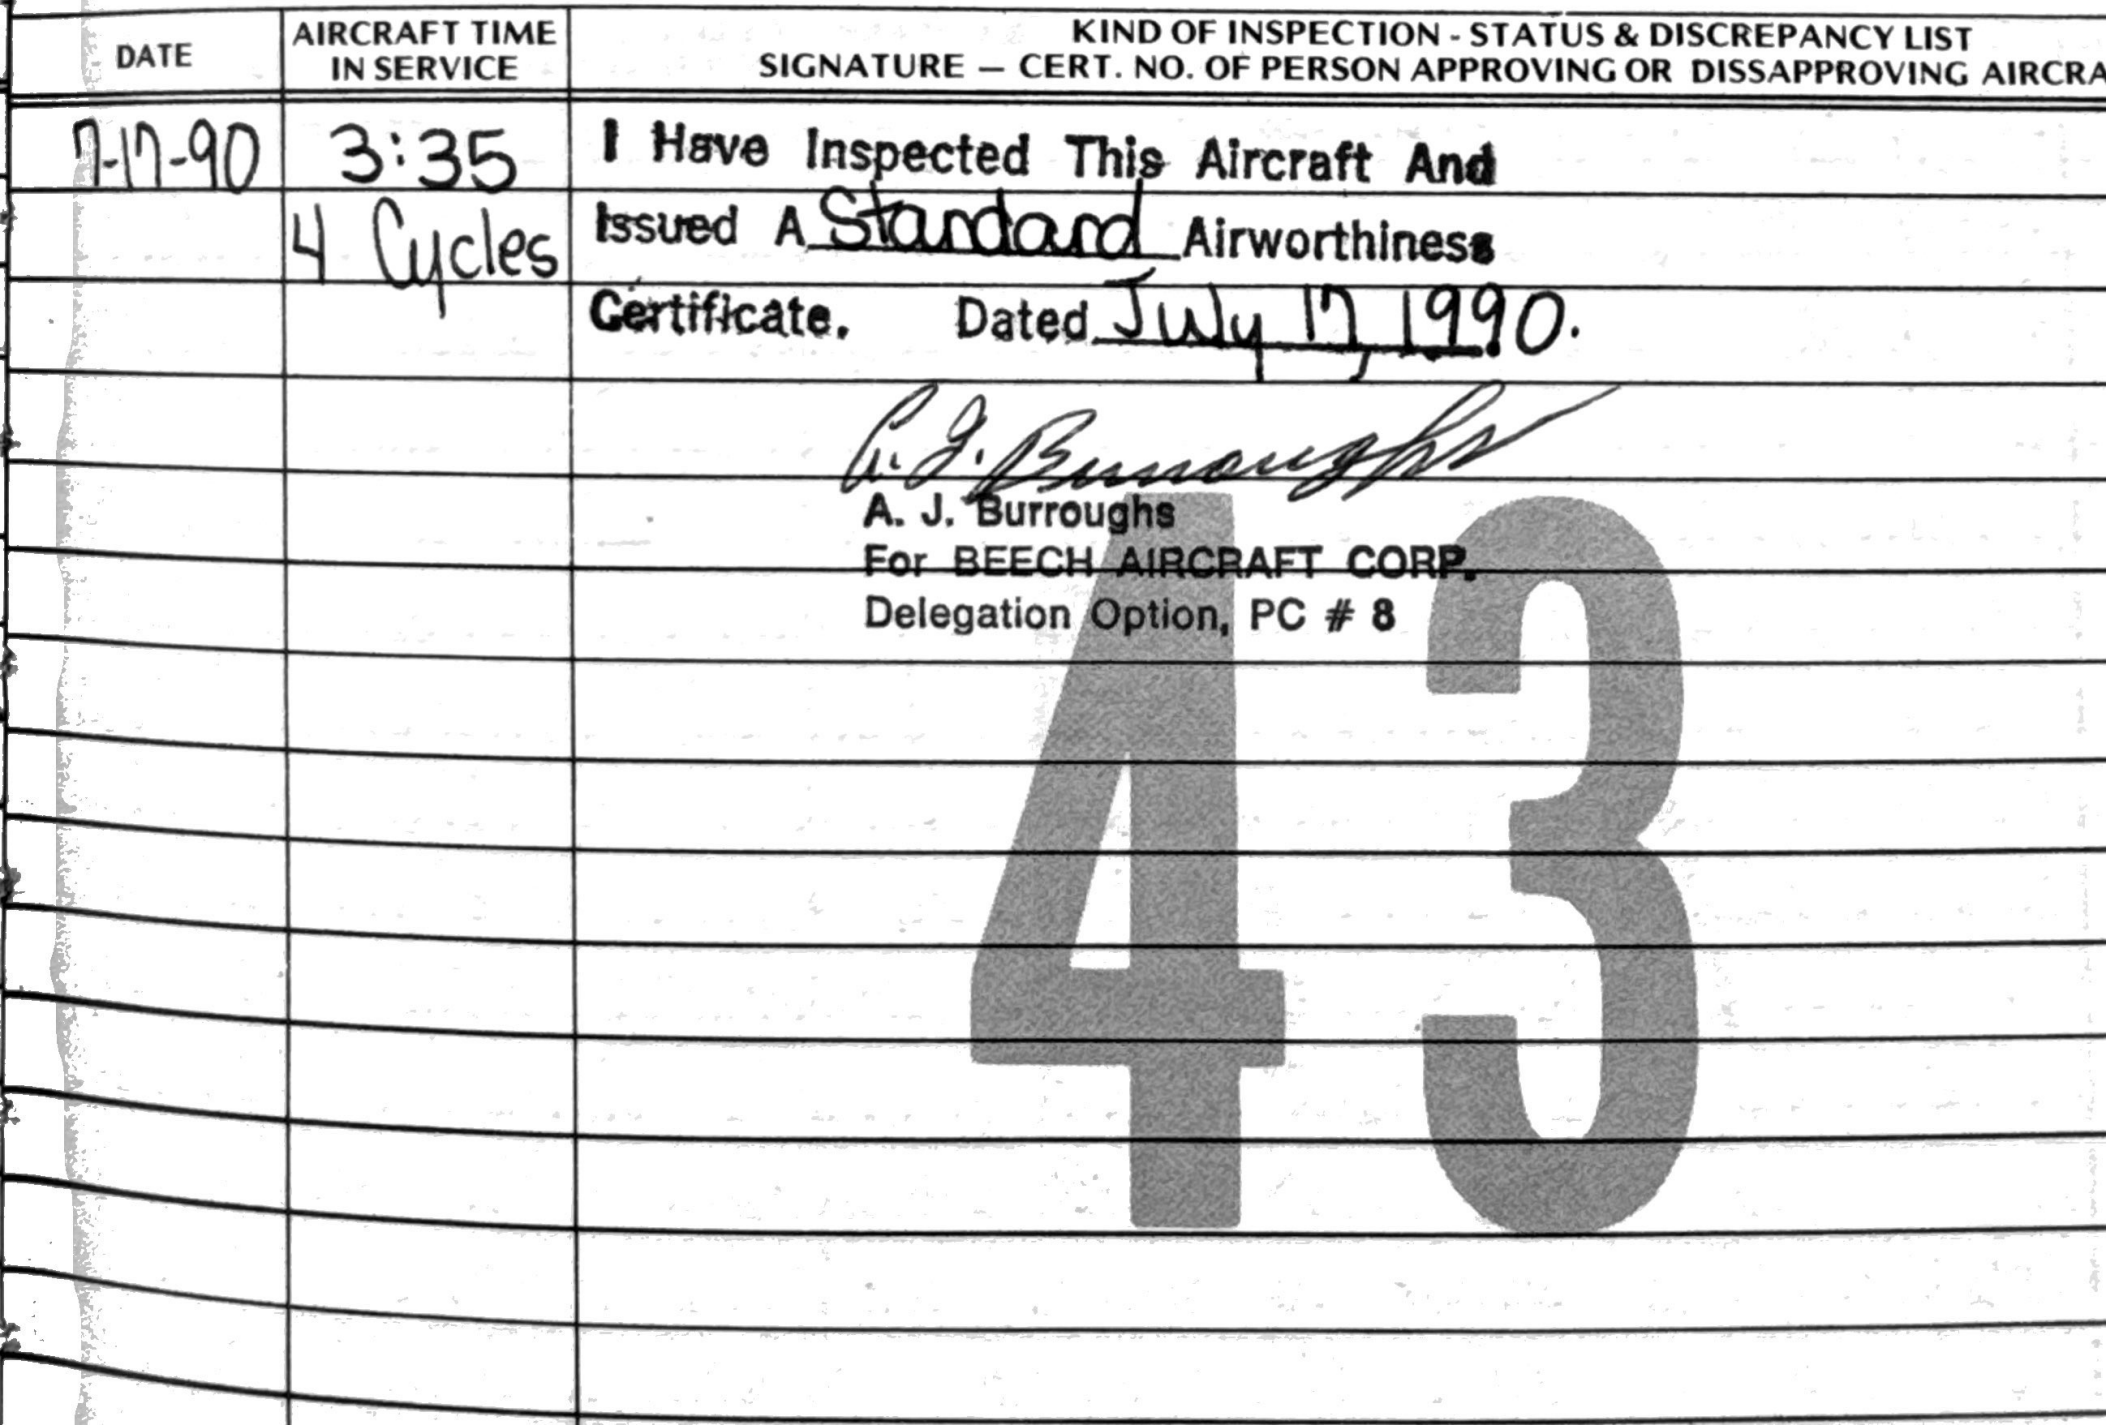 DATE
AIRCRAFT TIME
IN SERVICE
KIND OF INSPECTION - STATUS & DISCREPANCY LIST
SIGNATURE — CERT. NO. OF PERSON APPROVING OR DISSAPPROVING AIRCRA
7-17-90 3:35 I Have Inspected This Aircraft And
4 Cycles Issued A Standard Airworthiness
Certificate. Dated July 17, 1990.
A. J. Burroughs
A. J. Burroughs
For BEECH AIRCRAFT CORP.
Delegation Option, PC # 8
43